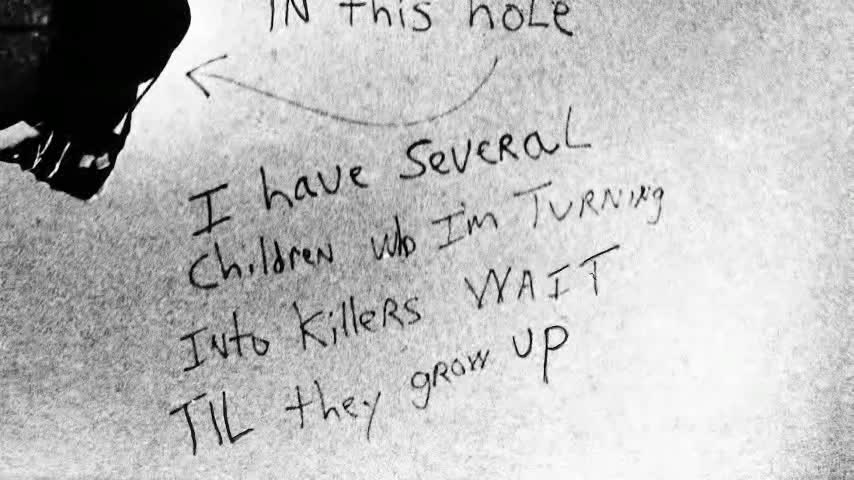 IN this hoLe
I have SeveRaL
Children who I'm TURNING
Into KilleRs WAIT
TIL they gROW UP